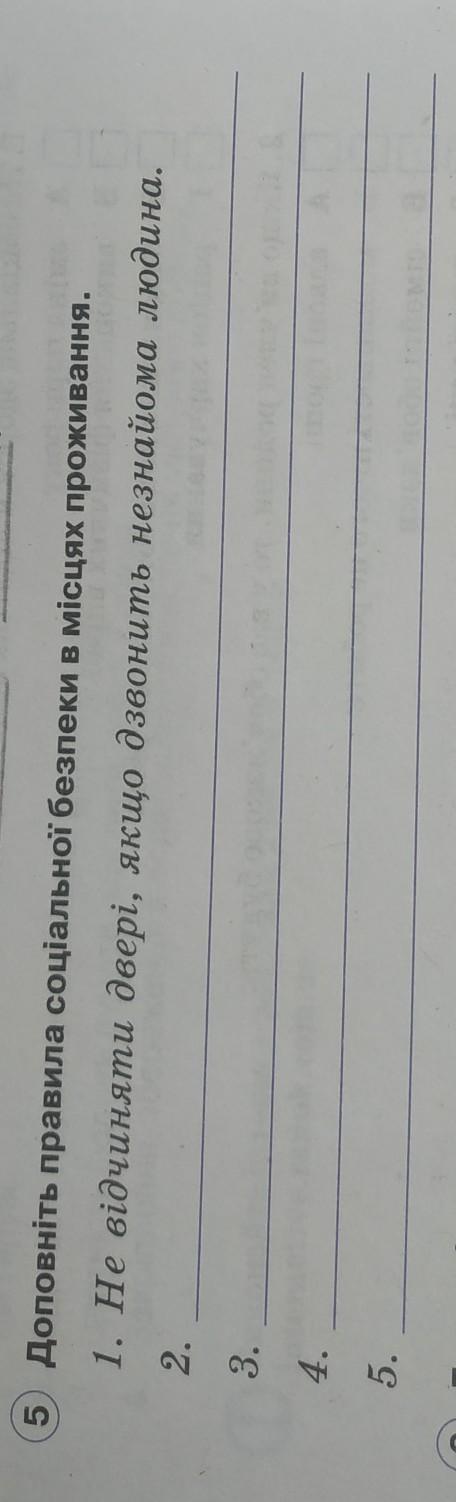 5 Доповніть правила соціальної безпеки в місцях проживання.
1. Не відчиняти двері, якщо дзвонить незнайома людина.
2.
3.
4.
5.